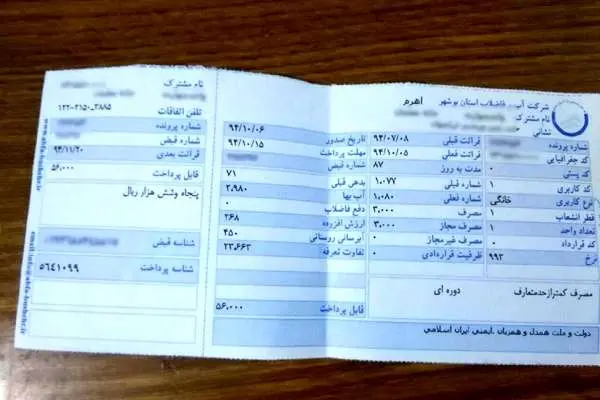 شرکت آب و فاضلاب استان بوشهر
اهرم
نام مشترک
نشانی
شماره پرونده
کد جغرافیایی
کد پستی ۰
کد کاربری ۱
نوع کاربری خانگی
قطر انشعاب ۱
تعداد واحد ۱
کد قرارداد ۰
نرخ ۹۹۳
قرائت قبلی ۹۴/۰۷/۰۸
قرائت فعلی ۹۴/۱۰/۰۵
مدت به روز ۸۷
شماره قبلی ۱،۰۷۷
شماره فعلی ۱،۰۸۰
مصرف ۳،۰۰۰
مصرف مجاز ۳،۰۰۰
مصرف غیرمجاز ۰
ظرفیت قراردادی ۰
مصرف کمتراز‌حدمتعارف دوره ای
تاریخ صدور ۹۴/۱۰/۰۶
مهلت پرداخت ۹۴/۱۰/۱۵
شماره قبض
بدهی قبلی ۷۱
آب بها ۲،۹۸۰
دفع فاضلاب ۰
ارزش افزوده ۲۶۸
آبرسانی روستائی ۴۵۰
تفاوت تعرفه ۲۳،۶۶۳
قابل پرداخت ۵۶،۰۰۰
دولت و ملت همدل و همزبان .ایمنی ایران اسلامی
نام مشترک
تلفن اتفاقات ۳۸۸۵-۳۱۵۰-۱۲۲
شماره پرونده
شماره قبض
قرائت بعدی ۹۴/۱۱/۲۰
قابل پرداخت ۵۶،۰۰۰
پنجاه وشش هزار ریال
شناسه قبض
شناسه پرداخت ۵۶۴۱۰۹۹